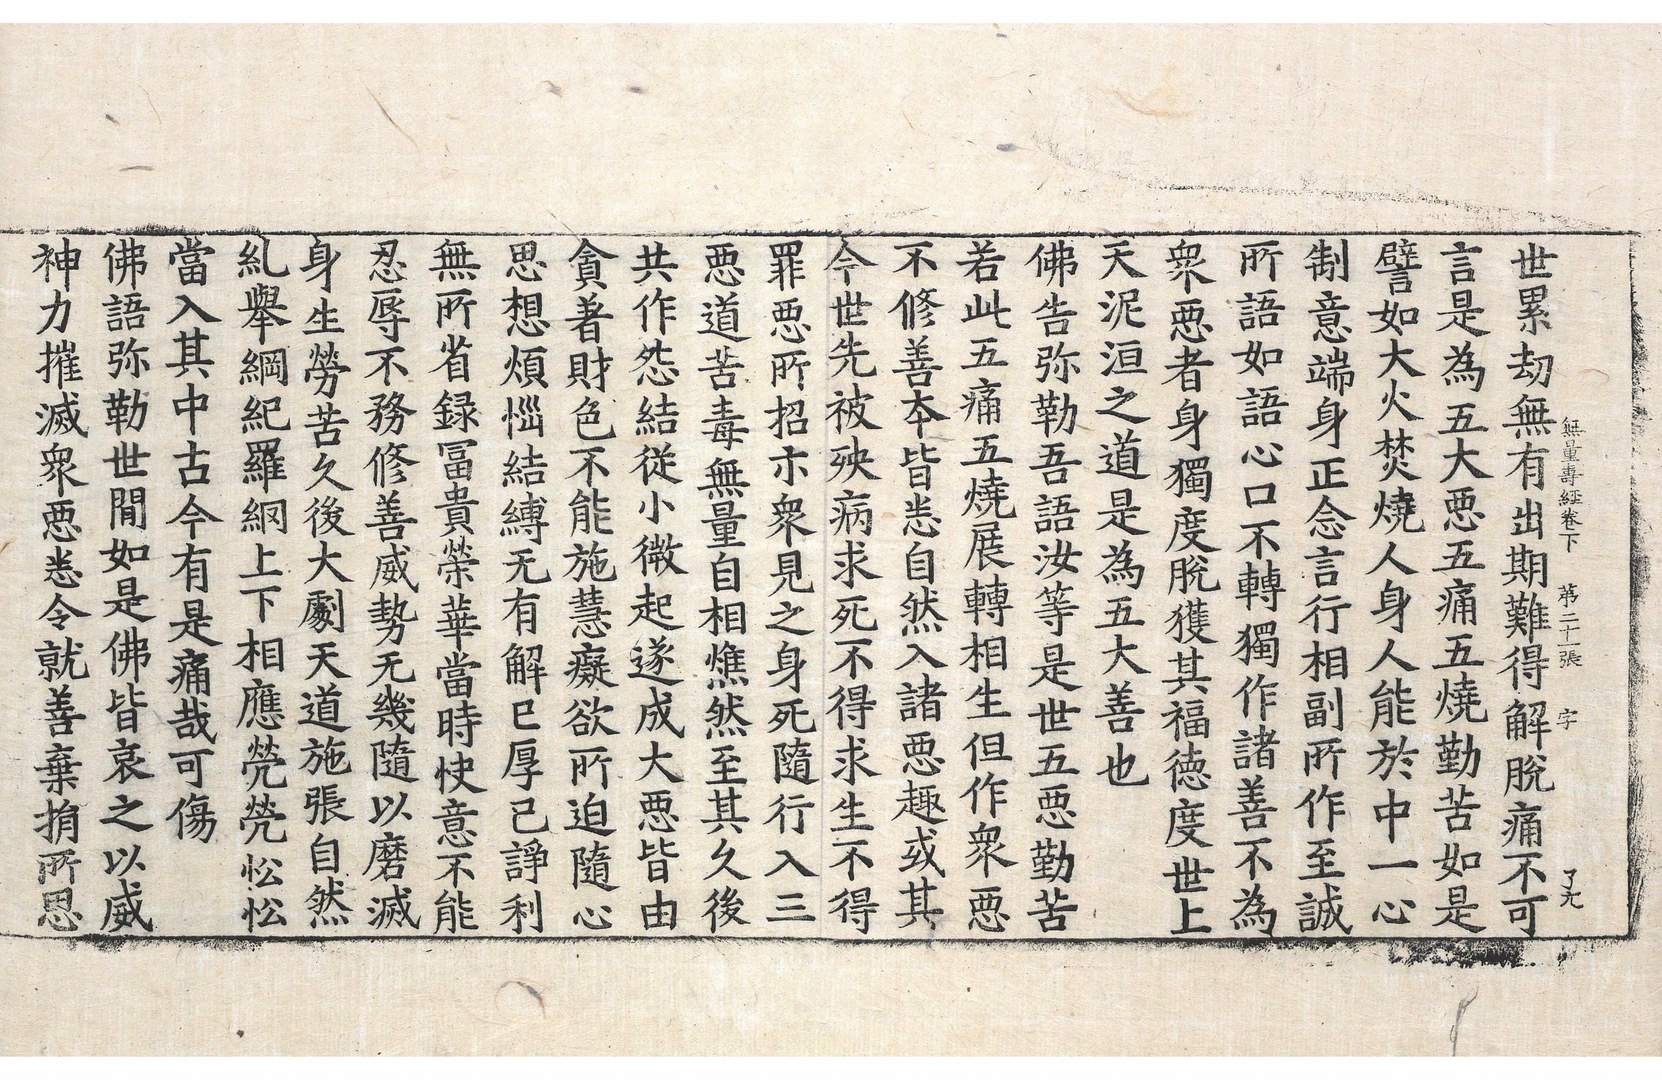 無量壽經卷下　第二十一張　字　了元
世累劫無有出期難得解脫痛不可
言是為五大惡五痛五燒勤苦如是
譬如大火焚燒人身人能於中一心
制意端身正念言行相副所作至誠
所語如語心口不轉獨作諸善不為
衆惡者身獨度脫獲其福德度世上
天泥洹之道是為五大善也
佛告弥勒吾語汝等是世五惡勤苦
若此五痛五燒展轉相生但作衆惡
不修善本皆悉自然入諸惡趣或其
今世先被殃病求死不得求生不得
罪惡所招示衆見之身死隨行入三
惡道苦毒無量自相燋然至其久後
共作怨結從小微起遂成大惡皆由
貪著財色不能施慧癡欲所迫隨心
思想煩惱結縛无有解已厚己諍利
無所省錄冨貴榮華當時快意不能
忍辱不務修善威勢无幾隨以磨滅
身生勞苦久後大劇天道施張自然
糺舉綱紀羅網上下相應煢煢忪忪
當入其中古今有是痛哉可傷
佛語弥勒世間如是佛皆哀之以威
神力摧滅衆惡悉令就善棄捐所思